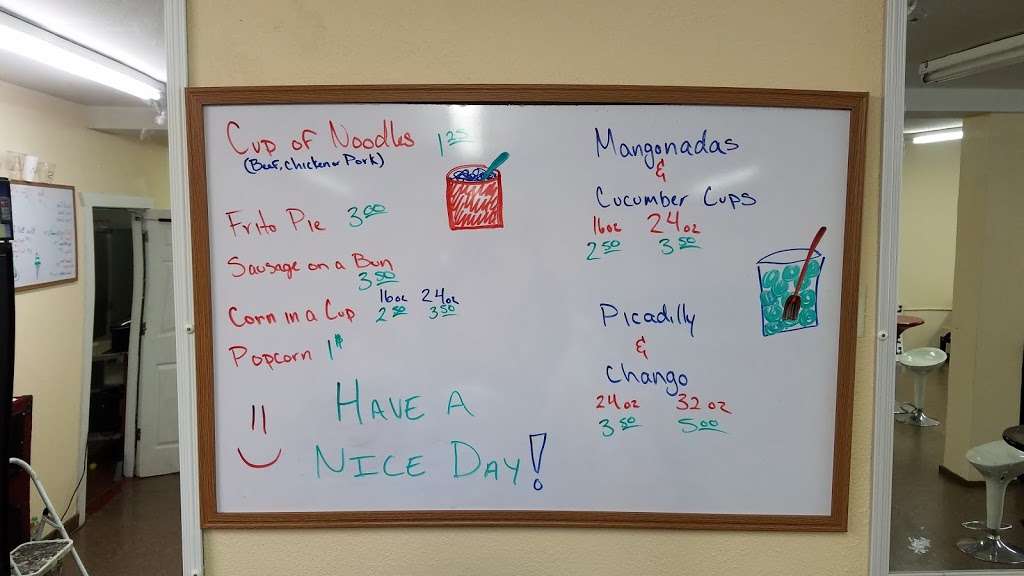 Cup of Noodles 1 25
(Beef, Chicken or Pork)
Frito Pie 3 00
Sausage on a Bun
3 50
Corn in a Cup 16oz 24oz
2 50 3 50
Popcorn 1
HAVE A
NICE DAY!
Mangonadas
&
Cucumber Cups
16oz 24oz
2 50 3 50
Picadilly
&
Chango
24oz 32oz
3 50 5 00